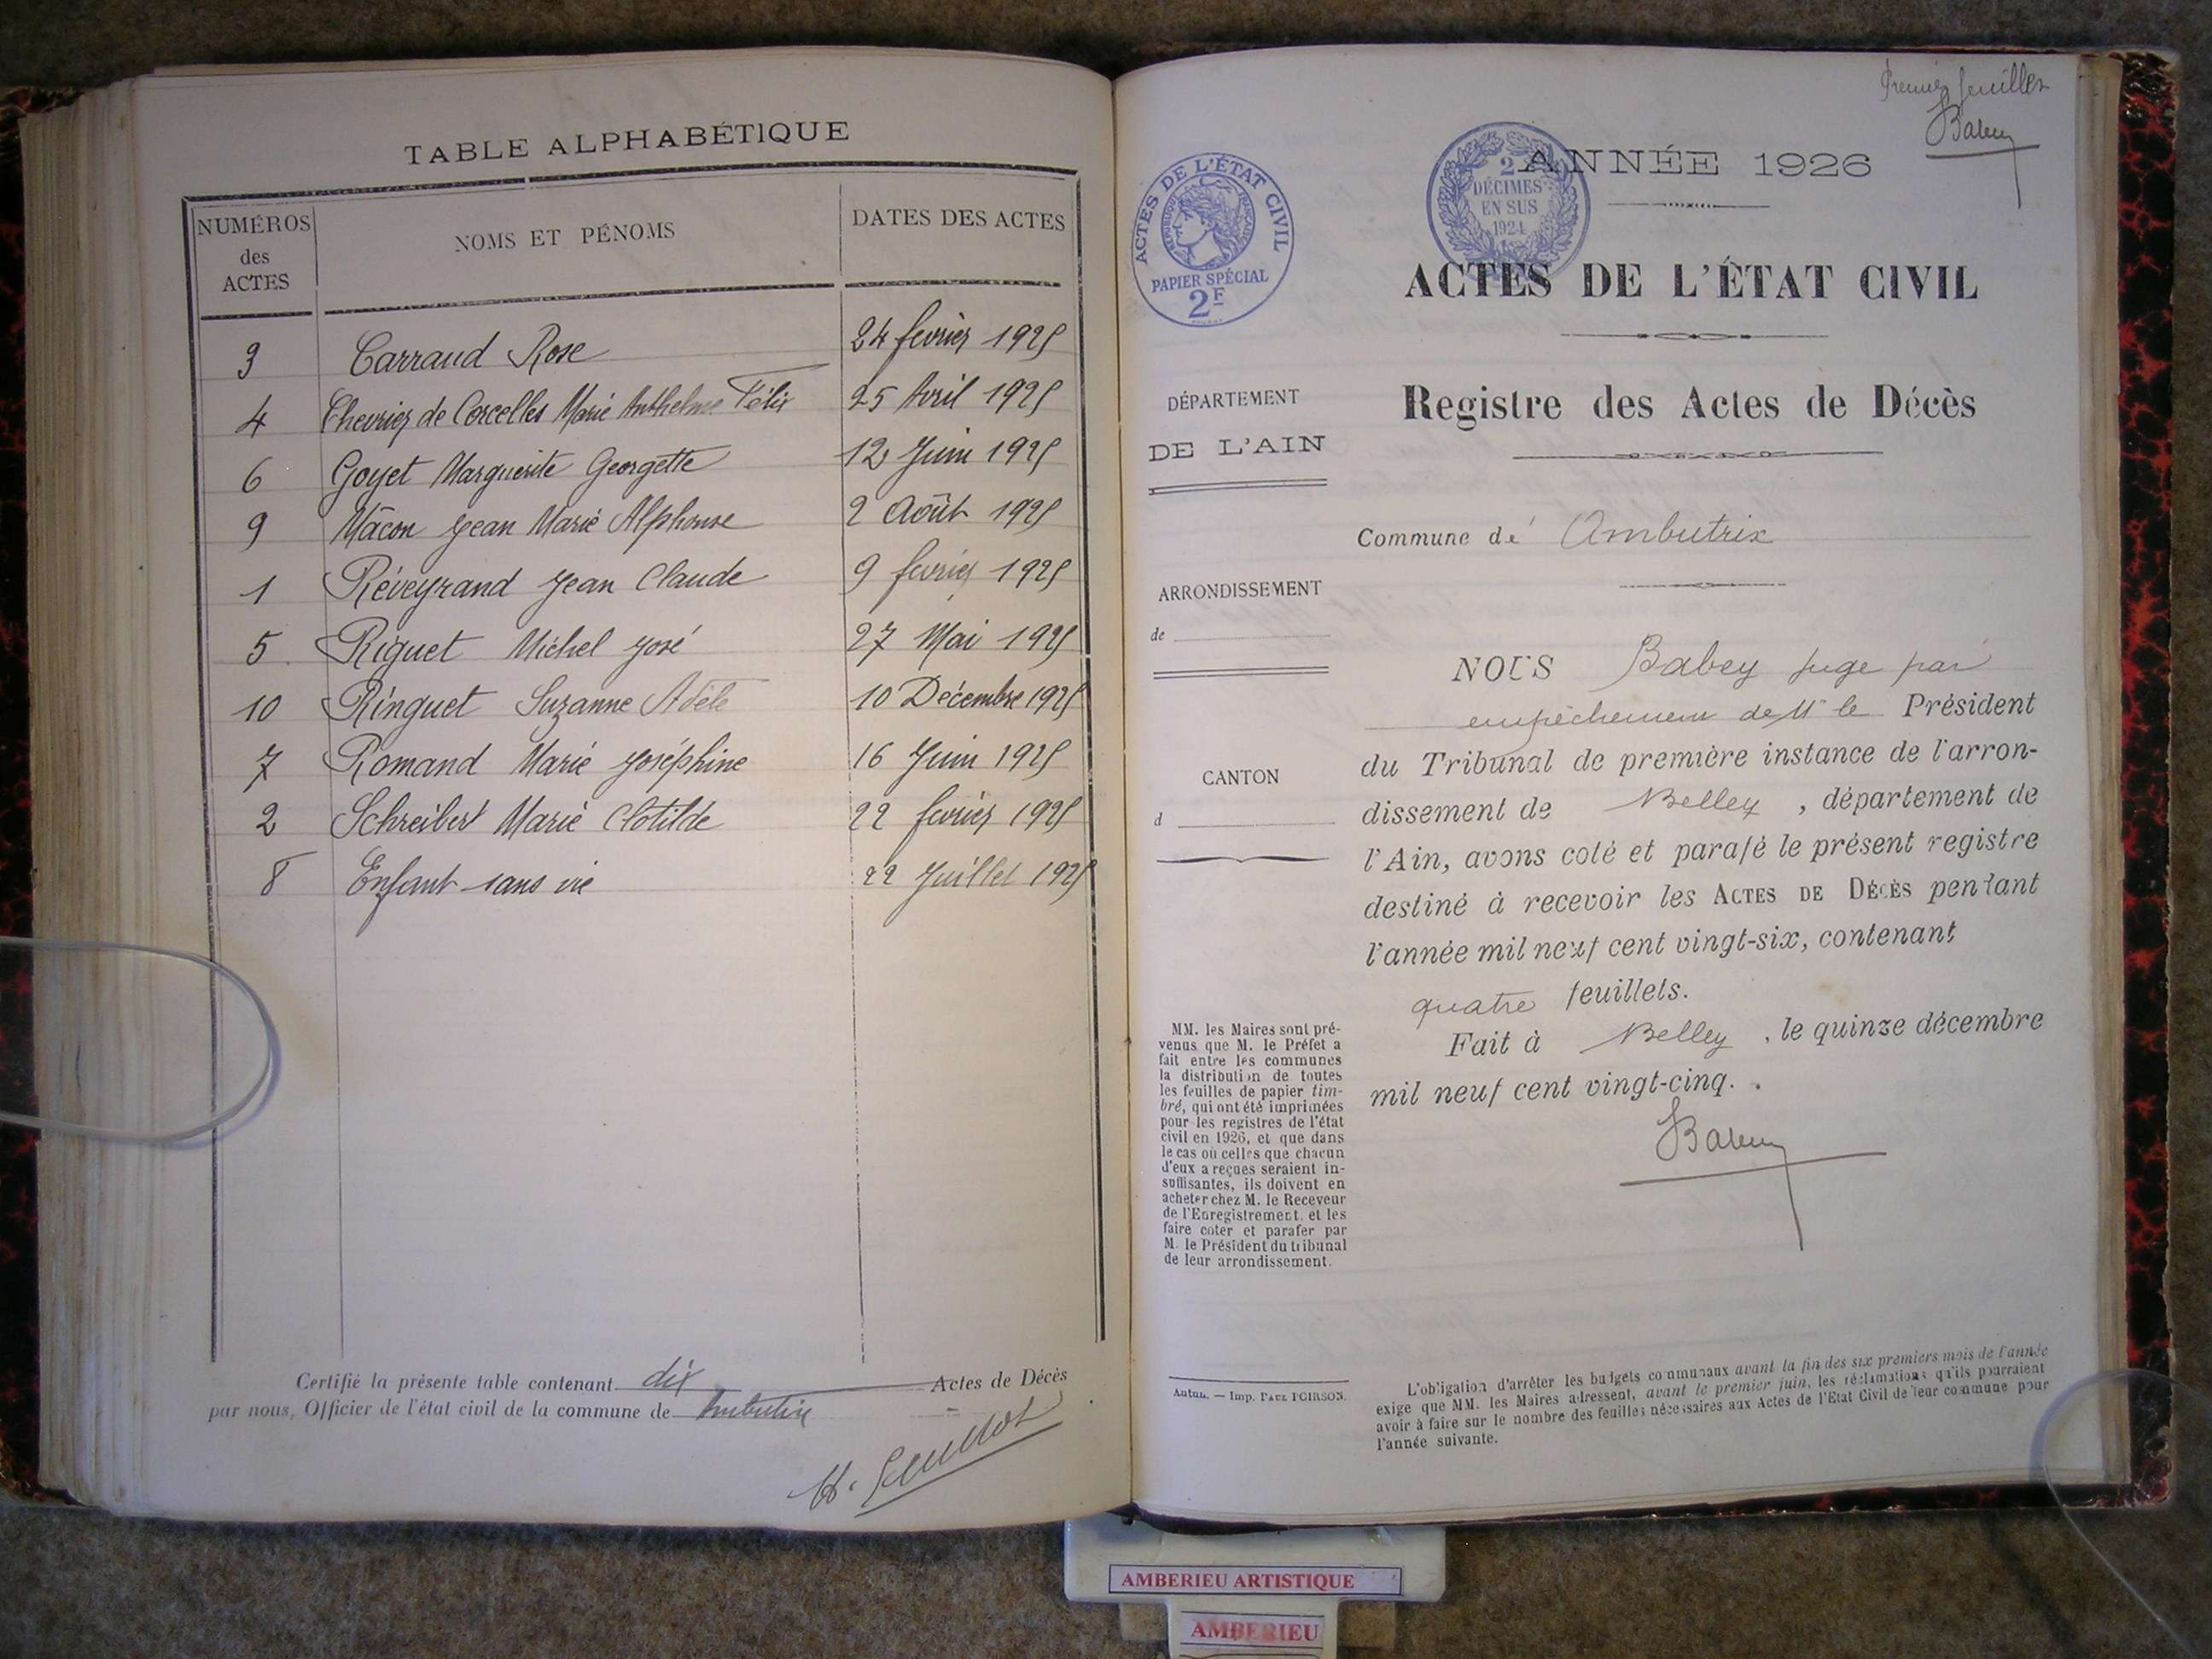 TABLE ALPHABÉTIQUE
NUMÉROS
des
ACTES
NOMS ET PÉNOMS
DATES DES ACTES
3 Carraud Rose 24 fevrier 1925
4 Chevrier de Corcelles Marie Anthelme Félix 25 Avril 1925
6 Goyet Marguerite Georgette 12 Juin 1925
9 Mâcon Jean Marie Alphonse 2 Août 1925
1 Réveyrand Jean Claude 9 fevrier 1925
5 Riguet Michel José 27 Mai 1925
10 Ringuet Suzanne Adèle 10 Décembre 1925
7 Romand Marie Joséphine 16 Juin 1925
2 Schreiber Marie Clotilde 22 fevrier 1925
8 Enfant sans vie 22 Juillet 1925
Certifié la présente table contenant dix Actes de Décès
par nous, Officier de l'état civil de la commune de Ambutrix
Premier feuillet
Babey
ACTES DE L'ÉTAT CIVIL
RÉPUBLIQUE FRANÇAISE
PAPIER SPÉCIAL
2F
2
DÉCIMES
EN SUS
1924
ANNÉE 1926
ACTES DE L'ÉTAT CIVIL
Registre des Actes de Décès
DÉPARTEMENT
DE L'AIN
Commune de Ambutrix
ARRONDISSEMENT
de
CANTON
d
NOUS Babey juge par
empêchement de Mr le Président
du Tribunal de première instance de l'arron-
dissement de Belley, département de
l'Ain, avons coté et parafé le présent registre
destiné à recevoir les ACTES DE DÉCÈS pendant
l'année mil neuf cent vingt-six, contenant
quatre feuillets.
Fait à Belley, le quinze décembre
mil neuf cent vingt-cinq.
Babey
MM. les Maires sont pré-
venus que M. le Préfet a
fait entre les communes
la distribution de toutes
les feuilles de papier tim-
bré, qui ont été imprimées
pour les registres de l'état
civil en 1926, et que dans
le cas où celles que chacun
d'eux a reçues seraient in-
suffisantes, ils doivent en
acheter chez M. le Receveur
de l'Enregistrement, et les
faire coter et parafer par
M. le Président du tribunal
de leur arrondissement.
Autun. — Imp. PAUL POIRSON.
L'obligation d'arrêter les budgets communaux avant la fin des six premiers mois de l'année
exige que MM. les Maires adressent, avant le premier juin, les réclamations qu'ils pourraient
avoir à faire sur le nombre des feuilles nécessaires aux Actes de l'Etat Civil de leur commune pour
l'année suivante.
AMBERIEU ARTISTIQUE
AMBERIEU